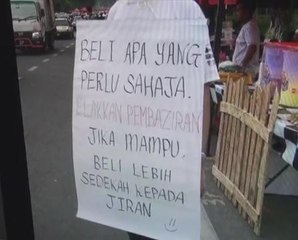 BELI APA YANG
PERLU SAHAJA.
ELAKKAN PEMBAZIRAN
JIKA MAMPU,
BELI LEBIH
SEDEKAH KEPADA
JIRAN